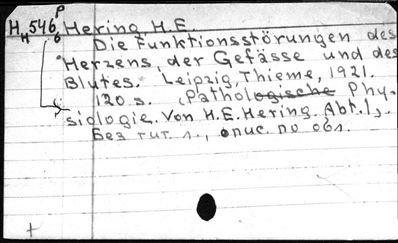 H H 546 P 6 Hering H.E.
Die Funktionsstörungen des
Herzens, der Gefässe und des
Blutes. Leipzig, Thieme, 1921.
120 s. (Pathologische Phy-
siologie. Von H.E. Hering. Abt. 1).
Без тит. л., опис. по обл.